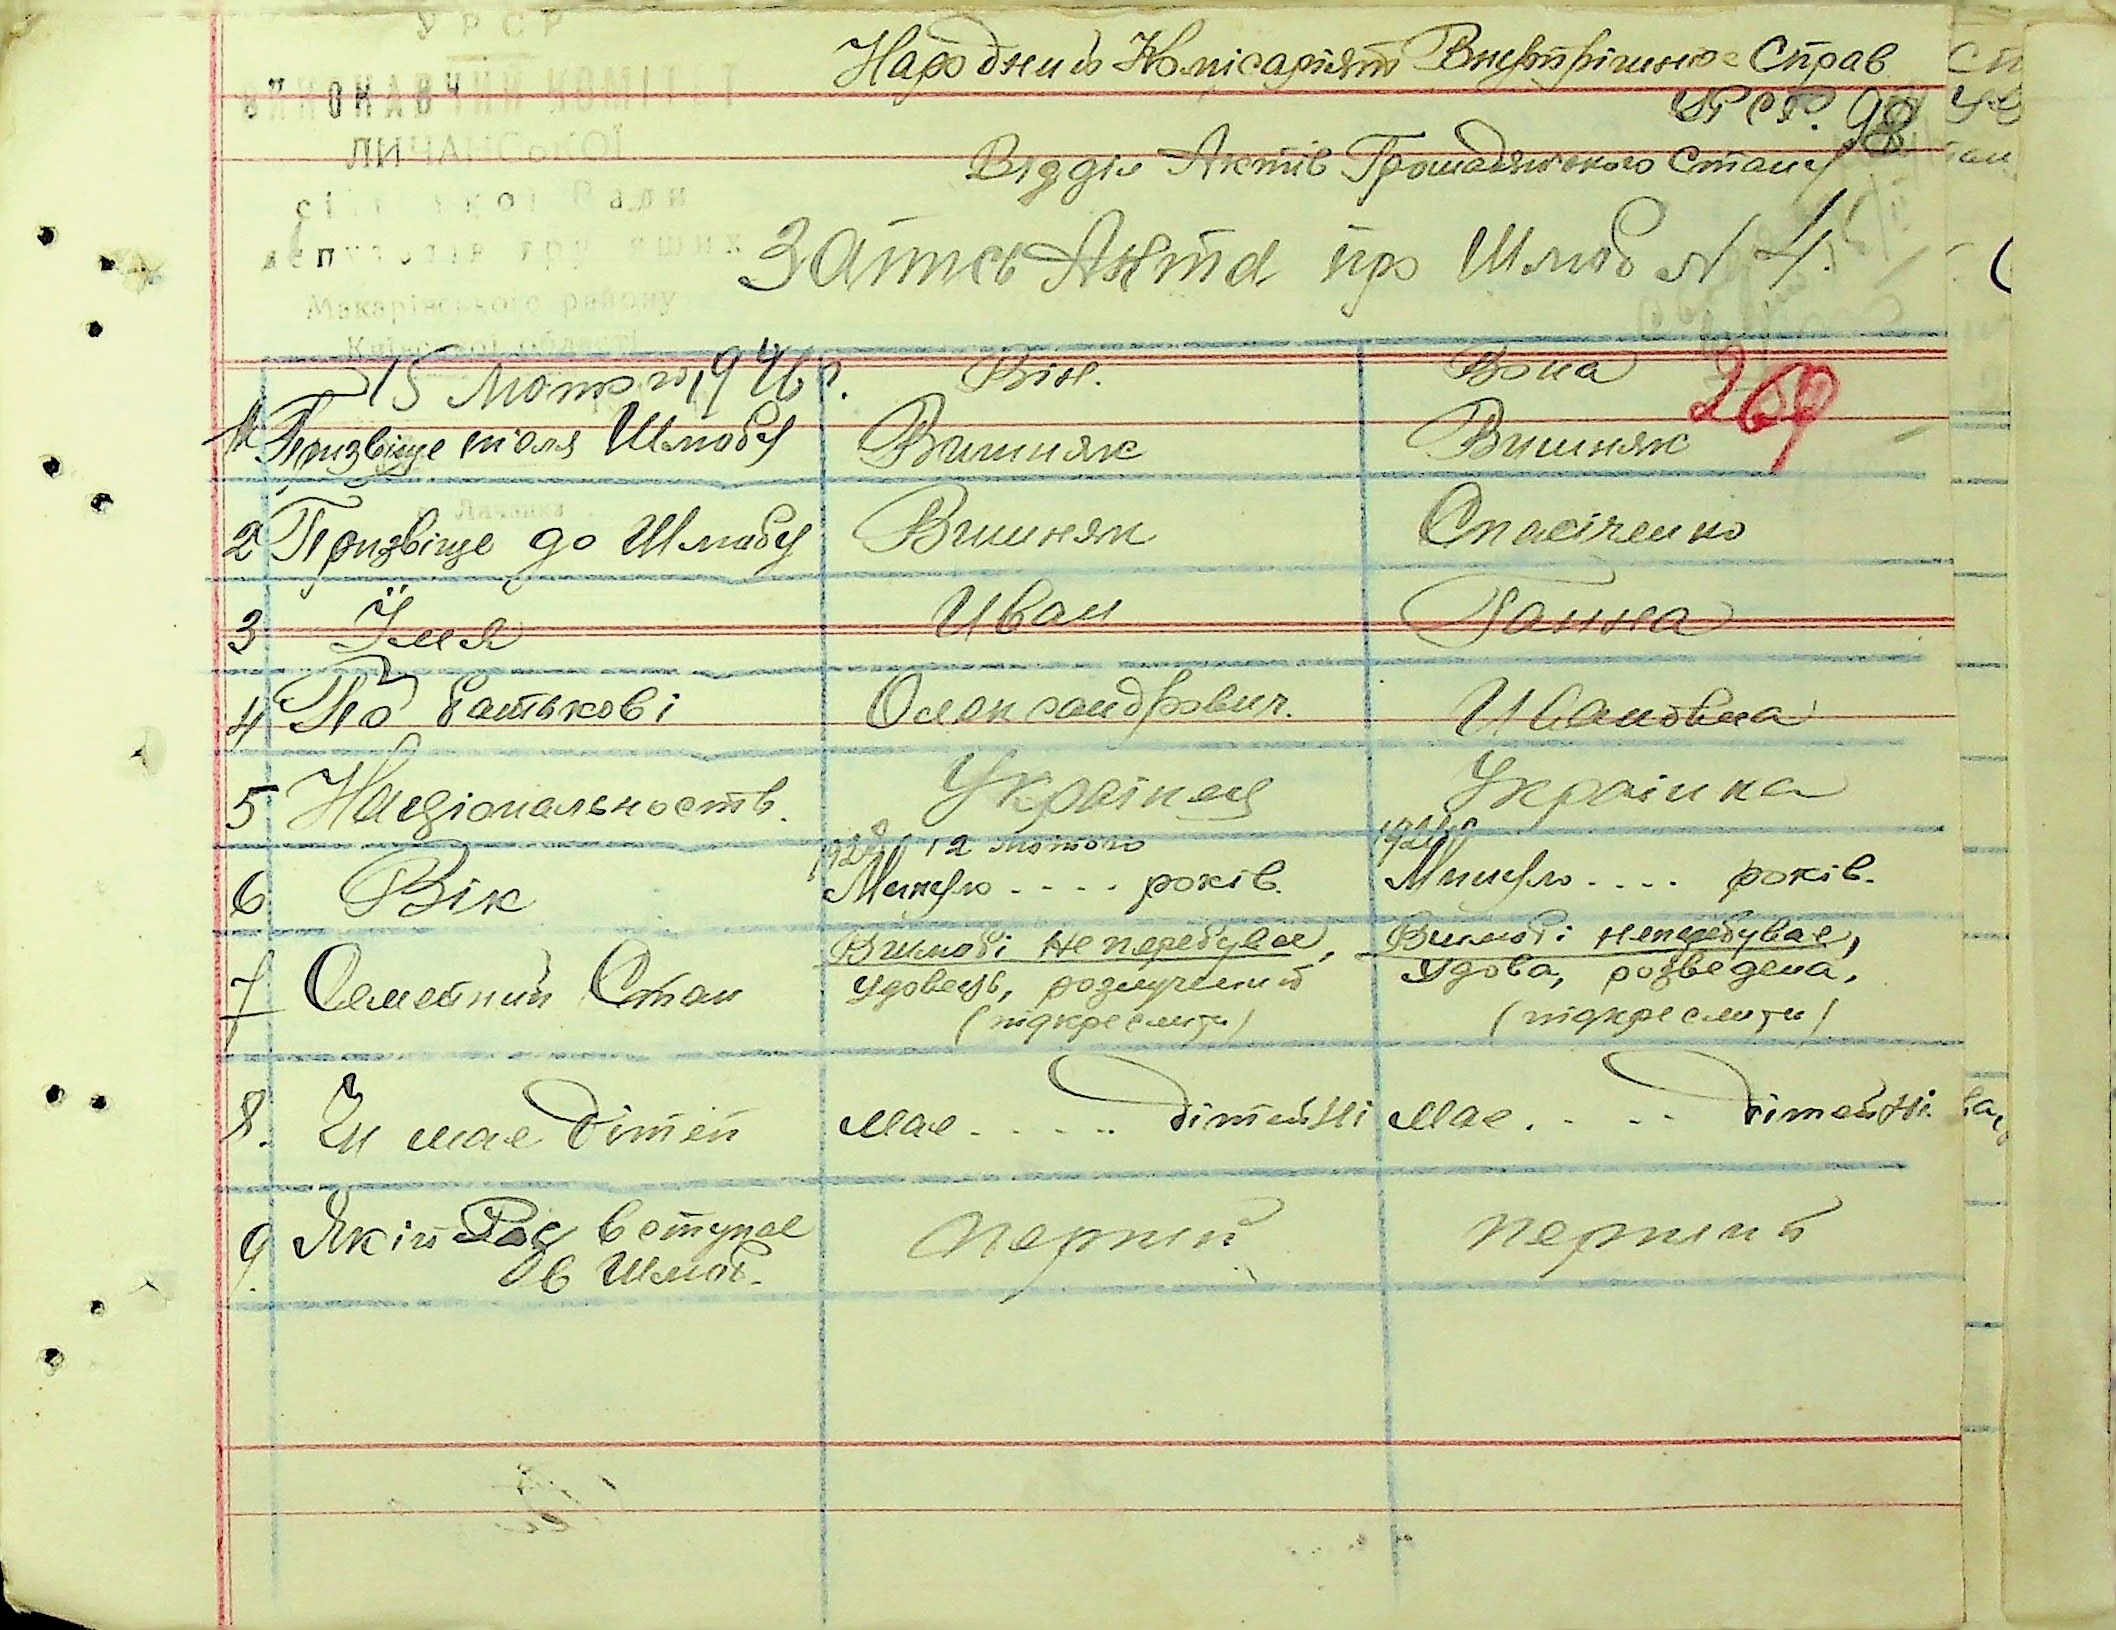 УРСР
ВИКОНАВЧИЙ КОМІТЕТ
ЛИЧАНСЬКОЇ
сільської Ради
депутатів трудящих
Макарівського району
Київської області
Народний Комісаріят Внутрішніх Справ
УРСР. 98
Відділ Актів Громадянського Стану
Запись Акта про Шлюб N 4.
15 Лютого 1946 р. Він. Вона
269
1 Призвіще після Шлюбу Вишняк Вишняк
2 Призвіще до Шлюбу Вишняк Спасіченко
3 Їмя Иван Ганна
4 По батькові Олександрович. Ивановна
5 Національность. Українец Українка
12 лютого
6 Вік Минуло .... років. Минуло .... років.
7 Семейний Стан В шлюбі не перебуває, В шлюбі неперебуває,
удовець, розлучений удова, розведена,
(підкреслити) (підкреслити)
8. Чи має дітей має ..... дітей Ні має .... дітей Ні.
9 Якій Раз вступає перший перший
в Шлюб.